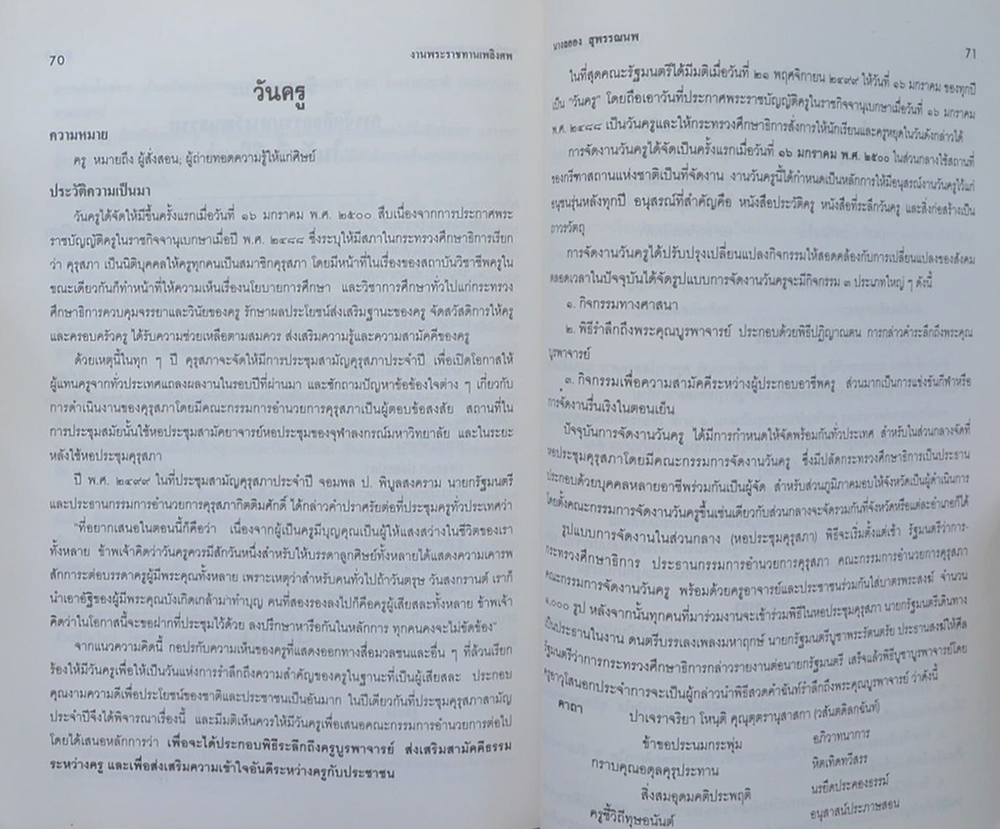 70
งานพระราชทานเพลิงศพ
วันครู
ความหมาย
ครู หมายถึง ผู้สั่งสอน; ผู้ถ่ายทอดความรู้ให้แก่ศิษย์
ประวัติความเป็นมา
วันครูได้จัดให้มีขึ้นครั้งแรกเมื่อวันที่ ๑๖ มกราคม พ.ศ. ๒๕๐๐ สืบเนื่องจากการประกาศพระ
ราชบัญญัติครูในราชกิจจานุเบกษาเมื่อปี พ.ศ. ๒๔๘๘ ซึ่งระบุให้มีสภาในกระทรวงศึกษาธิการเรียก
ว่า คุรุสภา เป็นนิติบุคคลให้ครูทุกคนเป็นสมาชิกคุรุสภา โดยมีหน้าที่ในเรื่องของสถาบันวิชาชีพครูใน
ขณะเดียวกันก็ทำหน้าที่ให้ความเห็นเรื่องนโยบายการศึกษา และวิชาการศึกษาทั่วไปแก่กระทรวง
ศึกษาธิการควบคุมจรรยาและวินัยของครู รักษาผลประโยชน์ส่งเสริมฐานะของครู จัดสวัสดิการให้ครู
และครอบครัวครู ได้รับความช่วยเหลือตามสมควร ส่งเสริมความรู้และความสามัคคีของครู
ด้วยเหตุนี้ในทุก ๆ ปี คุรุสภาจะจัดให้มีการประชุมสามัญคุรุสภาประจำปี เพื่อเปิดโอกาสให้
ผู้แทนครูจากทั่วประเทศแถลงผลงานในรอบปีที่ผ่านมา และซักถามปัญหาข้อข้องใจต่าง ๆ เกี่ยวกับ
การดำเนินงานของคุรุสภาโดยมีคณะกรรมการอำนวยการคุรุสภาเป็นผู้ตอบข้อสงสัย สถานที่ใน
การประชุมสมัยนั้นใช้หอประชุมสามัคยาจารย์หอประชุมของจุฬาลงกรณ์มหาวิทยาลัย และในระยะ
หลังใช้หอประชุมคุรุสภา
ปี พ.ศ. ๒๔๙๙ ในที่ประชุมสามัญคุรุสภาประจำปี จอมพล ป. พิบูลสงคราม นายกรัฐมนตรี
และประธานกรรมการอำนวยการคุรุสภากิตติมศักดิ์ ได้กล่าวคำปราศรัยต่อที่ประชุมครูทั่วประเทศว่า
"ที่อยากเสนอในตอนนี้ก็คือว่า เนื่องจากผู้เป็นครูมีบุญคุณเป็นผู้ให้แสงสว่างในชีวิตของเรา
ทั้งหลาย ข้าพเจ้าคิดว่าวันครูควรมีสักวันหนึ่งสำหรับให้บรรดาลูกศิษย์ทั้งหลายได้แสดงความเคารพ
สักการะต่อบรรดาครูผู้มีพระคุณทั้งหลาย เพราะเหตุว่าสำหรับคนทั่วไปถ้าวันตรุษ วันสงกรานต์ เราก็
นำเอาอัฐิของผู้มีพระคุณบังเกิดเกล้ามาทำบุญ คนที่สองรองลงไปก็คือครูผู้เสียสละทั้งหลาย ข้าพเจ้า
คิดว่าในโอกาสนี้จะขอฝากที่ประชุมไว้ด้วย ลงปรึกษาหารือกันในหลักการ ทุกคนคงจะไม่ขัดข้อง"
จากแนวความคิดนี้ กอปรกับความเห็นของครูที่แสดงออกทางสื่อมวลชนและอื่น ๆ ที่ล้วนเรียก
ร้องให้มีวันครูเพื่อให้เป็นวันแห่งการรำลึกถึงความสำคัญของครูในฐานะที่เป็นผู้เสียสละ ประกอบ
คุณงามความดีเพื่อประโยชน์ของชาติและประชาชนเป็นอันมาก ในปีเดียวกันที่ประชุมคุรุสภาสามัญ
ประจำปีจึงได้พิจารณาเรื่องนี้ และมีมติเห็นควรให้มีวันครูเพื่อเสนอคณะกรรมการอำนวยการต่อไป
โดยได้เสนอหลักการว่า เพื่อจะได้ประกอบพิธีระลึกถึงครูบูรพาจารย์ ส่งเสริมสามัคคีธรรม
ระหว่างครู และเพื่อส่งเสริมความเข้าใจอันดีระหว่างครูกับประชาชน
นางออง สุพรรณนพ
71
ในที่สุดคณะรัฐมนตรีได้มีมติเมื่อวันที่ ๒๑ พฤศจิกายน ๒๔๙๙ ให้วันที่ ๑๖ มกราคม ของทุกปี
เป็น "วันครู" โดยถือเอาวันที่ประกาศพระราชบัญญัติครูในราชกิจจานุเบกษาเมื่อวันที่ ๑๖ มกราคม
พ.ศ. ๒๔๘๘ เป็นวันครูและให้กระทรวงศึกษาธิการสั่งการให้นักเรียนและครูหยุดในวันดังกล่าวได้
การจัดงานวันครูได้จัดเป็นครั้งแรกเมื่อวันที่ ๑๖ มกราคม พ.ศ. ๒๕๐๐ ในส่วนกลางใช้สถานที่
ของกรีฑาสถานแห่งชาติเป็นที่จัดงาน งานวันครูนี้ได้กำหนดเป็นหลักการให้มีอนุสรณ์งานวันครูไว้แก่
อนุชนรุ่นหลังทุกปี อนุสรณ์ที่สำคัญคือ หนังสือประวัติครู หนังสือที่ระลึกวันครู และสิ่งก่อสร้างเป็น
ถาวรวัตถุ
การจัดงานวันครูได้ปรับปรุงเปลี่ยนแปลงกิจกรรมให้สอดคล้องกับการเปลี่ยนแปลงของสังคม
ตลอดเวลาในปัจจุบันได้จัดรูปแบบการจัดงานวันครูจะมีกิจกรรม ๓ ประเภทใหญ่ ๆ ดังนี้
๑. กิจกรรมทางศาสนา
๒. พิธีรำลึกถึงพระคุณบูรพาจารย์ ประกอบด้วยพิธีปฏิญาณตน การกล่าวคำระลึกถึงพระคุณ
บูรพาจารย์
๓. กิจกรรมเพื่อความสามัคคีระหว่างผู้ประกอบอาชีพครู ส่วนมากเป็นการแข่งขันกีฬาหรือ
การจัดงานรื่นเริงในตอนเย็น
ปัจจุบันการจัดงานวันครู ได้มีการกำหนดให้จัดพร้อมกันทั่วประเทศ สำหรับในส่วนกลางจัดที่
หอประชุมคุรุสภาโดยมีคณะกรรมการจัดงานวันครู ซึ่งมีปลัดกระทรวงศึกษาธิการเป็นประธาน
ประกอบด้วยบุคคลหลายอาชีพร่วมกันเป็นผู้จัด สำหรับส่วนภูมิภาคมอบให้จังหวัดเป็นผู้ดำเนินการ
โดยตั้งคณะกรรมการจัดงานวันครูขึ้นเช่นเดียวกับส่วนกลางจะจัดรวมกันที่จังหวัดหรือแต่ละอำเภอก็ได้
รูปแบบการจัดงานในส่วนกลาง (หอประชุมคุรุสภา) พิธีจะเริ่มตั้งแต่เช้า รัฐมนตรีว่าการ-
กระทรวงศึกษาธิการ ประธานกรรมการอำนวยการคุรุสภา คณะกรรมการอำนวยการคุรุสภา
คณะกรรมการจัดงานวันครู พร้อมด้วยครูอาจารย์และประชาชนร่วมกันใส่บาตรพระสงฆ์ จำนวน
๑,๐๐๐ รูป หลังจากนั้นทุกคนที่มาร่วมงานจะเข้าร่วมพิธีในหอประชุมคุรุสภา นายกรัฐมนตรีเดินทาง
เป็นประธานในงาน ดนตรีบรรเลงเพลงมหาฤกษ์ นายกรัฐมนตรีบูชาพระรัตนตรัย ประธานสงฆ์ให้ศีล
รัฐมนตรีว่าการกระทรวงศึกษาธิการกล่าวรายงานต่อนายกรัฐมนตรี เสร็จแล้วพิธีบูชาบูรพาจารย์โดย
ครูอาวุโสนอกประจำการจะเป็นผู้กล่าวนำพิธีสวดคำฉันท์รำลึกถึงพระคุณบูรพาจารย์ ว่าดังนี้
คาถา ปาเจราจริยา โหนฺติ คุณุตฺตรานุสาสกา (วสันตดิลกฉันท์)
ข้าขอประนมกระพุ่ม อภิวาทนาการ
กราบคุณอดุลคุรุประทาน หิตเทิดทวีสรร
สิ่งสมอุดมคติประพฤติ นรยึดประคองธรรม์
ครูชี้วิถีทุษอนันต์ อนุสาสน์ประภาษสอน